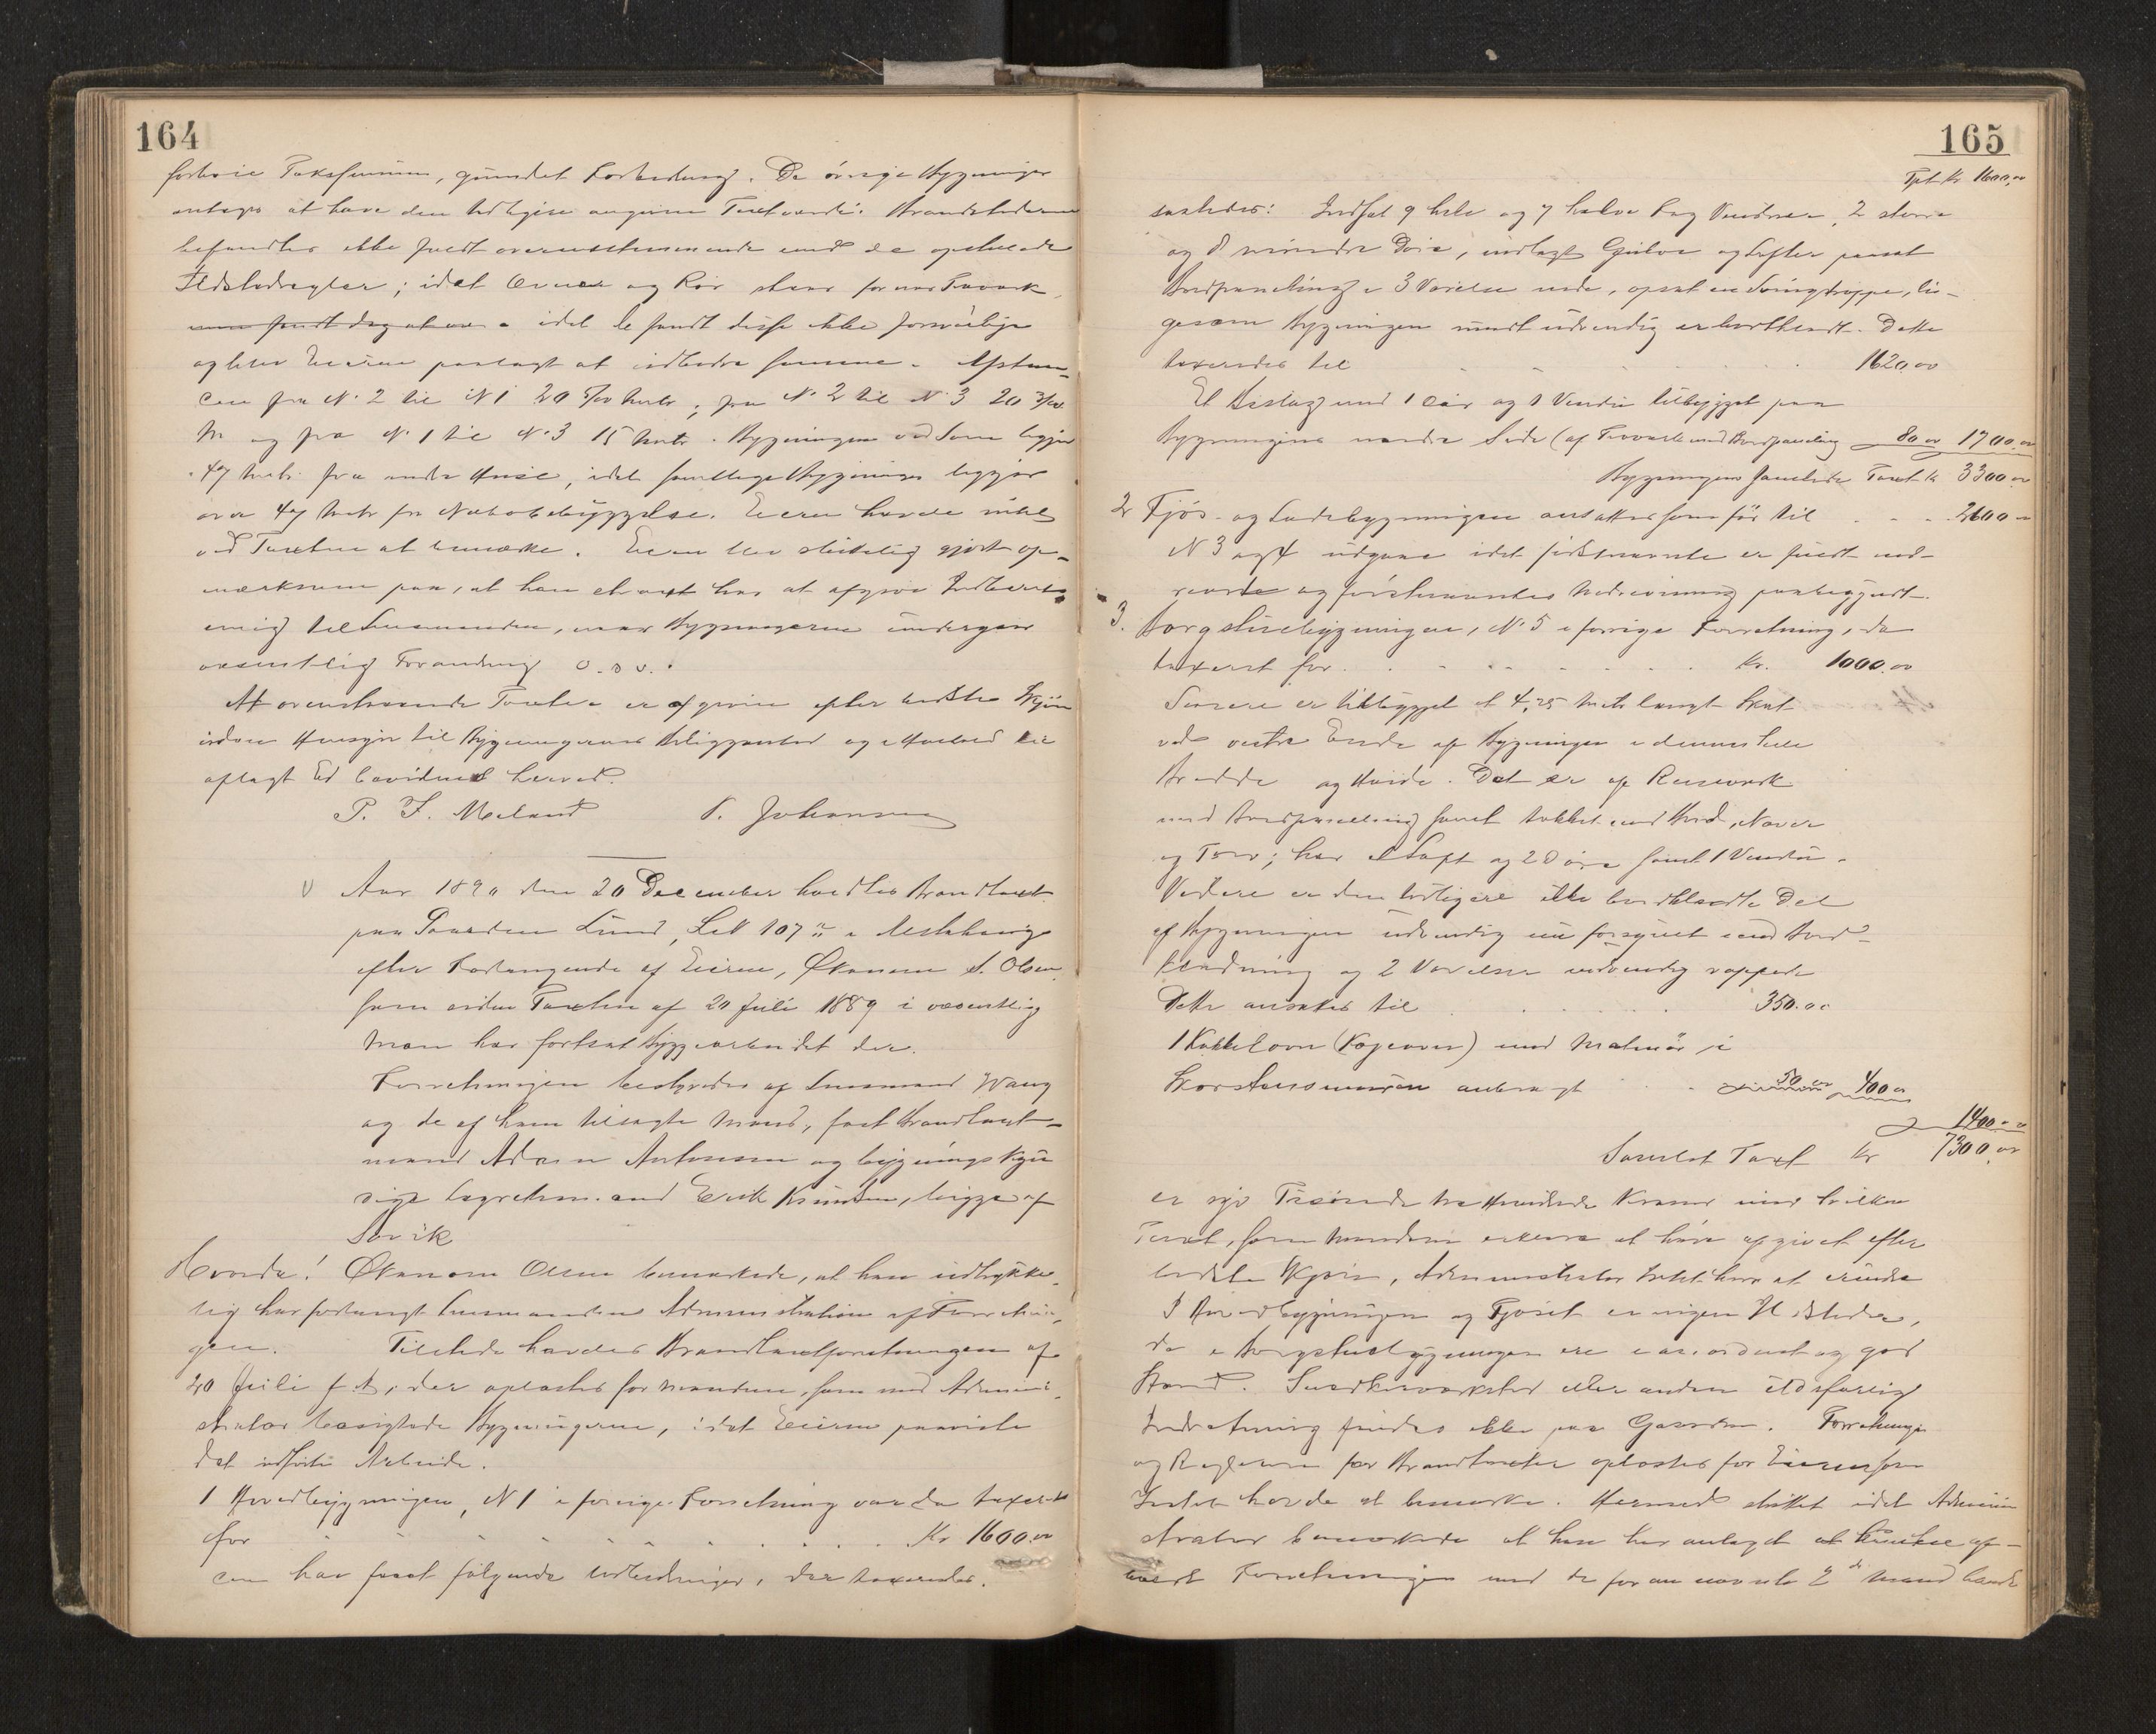 164
forhøie Taxsummen, grundet Forbedring. De øvrige Bygninger
antages at have den tidligere angivne Taxtværdi. Brandstederne
befandtes ikke fuldt overensstemmende med de opstillede
Ildstedsregler; idet Ovner og Rør staar for nær Træværk,
idet befandt disse ikke forsvarlige
og blev Eieren paalagt at udbedre samme. Afstan-
cen fra No 2 til N 1 20 5/10 Metr; fra No 2 til No 3 20 3/10
M og fra No 1 til No 3 15 Metr. Bygningen ved Søen ligger
47 Metr fra andre Huse, idet samtlige Bygninger ligger
over 47 Metr fra Nabobebyggelse. Eieren havde intet
ved Taxten at bemærke. Eieren blev skriftlig gjort op-
mærksom paa, at han straxt har at afgive Indberet-
ning til Lensmanden, naar Bygningerne undergaar
væsentlig Forandring o.s.v.
At ovenstaaende Taxter er afgivne efter bedste Skjøn
uden Hensyn til Bygningernes Beliggenhed og i Henhold til
aflagt Ed bevidnes herved.
P. J. Meland P. Johansen
Aar 1890 den 20 December holdtes Brandtaxt
paa Gaarden Lund, L.N 107 i
efter Forlangende af Eieren, Økonom S. Olsen
som siden Taxten af 20 Juli 1889 i væsentlig
Mon har fortsat Byggearbeidet der.
Forretningen bestyredes af Lensmand Wang
og de af ham tilsagte Mænd, fast Brandtaxt-
mand Adrian Antonsen og bygningskyn-
dige Lagrettem. and Erik Knudsen, begge af
Sørvik
Hvorda! Økonom Olsen bemærkede, at han udtrykke-
lig har forlangt Lensmandens Administration af Forretnin-
gen. Tilstede havdes Brandtaxtforretningen af
20 Juli f. A., der oplæstes for Mændene, som med Admini-
strator besigtede Bygningerne, idet Eieren paaviste
det udførte Arbeide.
1 Hovedbygningen, N 1 i forrige Forretning var da taxeret
for Kr 1600.00
men har faaet følgende Udbedringer, der taxeredes.
165
Tpt Kr 1600,00
saaledes: Indsat 9 hele og 7 halve Fag Vinduer, 2 større
og 8 mindre Døre, indlagt Gulve og Lofter paasat
Bordpaneling i 3 Værelser nede, opsat en Svingtrappe, li-
gesom Bygningen rundt udvendig er bordklædt. Dette
taxeredes til 1620,00
Et Bislag med 1 Dør og 1 Vindu tilbygget paa
Bygningens nordre Side (af Træværk med Bordpaneling 80 00 1700.00
Bygningens samlede Taxt Kr 3300 00
2 Fjøs- og Ladebygningen ansættes som før til 2600 -
N 3 og 4 udgaar idet sidstnævnte er fuldt ned-
revet og førstnævntes Nedrivning paabegyndt.
3. Borgstuebygningen, No 5 i forrige Forretning, da
taxeret for Kr. 1000.00
Senere er tilbygget et 4,25 Metr langt Skot
ved vestre Ende af Bygningen i dennes hele
Bredde og Høide. Det er af Reisverk
med Bordpaneling samt tækket med Bord, Næver
og Torv; har et Loft og 2 Døre samt 1 Vindu.
Videre er den tidligere ikke bordklædte Del
af Bygningen udvendig nu forsynet med Bord-
klædning og 2 Værelser indvendig rappede
Dette ansættes til 350.00
1 Kakkelovn (Kogeovn) med Malmrør i
Skorstensmuren anbragt 50 00 400 00
1400.00
Samlet Taxt Kr 7300,00
er syv Tusinde tre Hundrede Kroner mod hvilken
Taxt, som Mændene erklærer at have afgivet efter
bedste Skjøn, Administrator Intet har at erindre
I Hovedbygningen og Fjøset er ingen Ildsteder,
de i Borgstuebygningen ere i en. ordent og god
Stand. Snedkerværksted eller anden ildsfarlig
Indretning findes ikke paa Gaarden. Forretningen
og Reglerne for Brandtaxter oplæstes for Eieren som
Intet havde at bemærke. Hermed sluttet idet Admini-
strator bemærkede at han har antaget at kunne af-
holdt Forretningen med de foran nævnte 2de Mænd